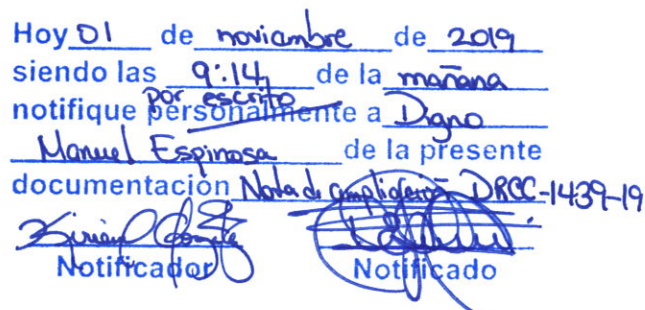 Hoy 01 de noviembre de 2019
siendo las 9:14 de la mañana
por escrito
notifique personalmente a Digno
Manuel Espinosa de la presente
documentación Nota de ampliación DRCC-1439-19
Notificador Notificado